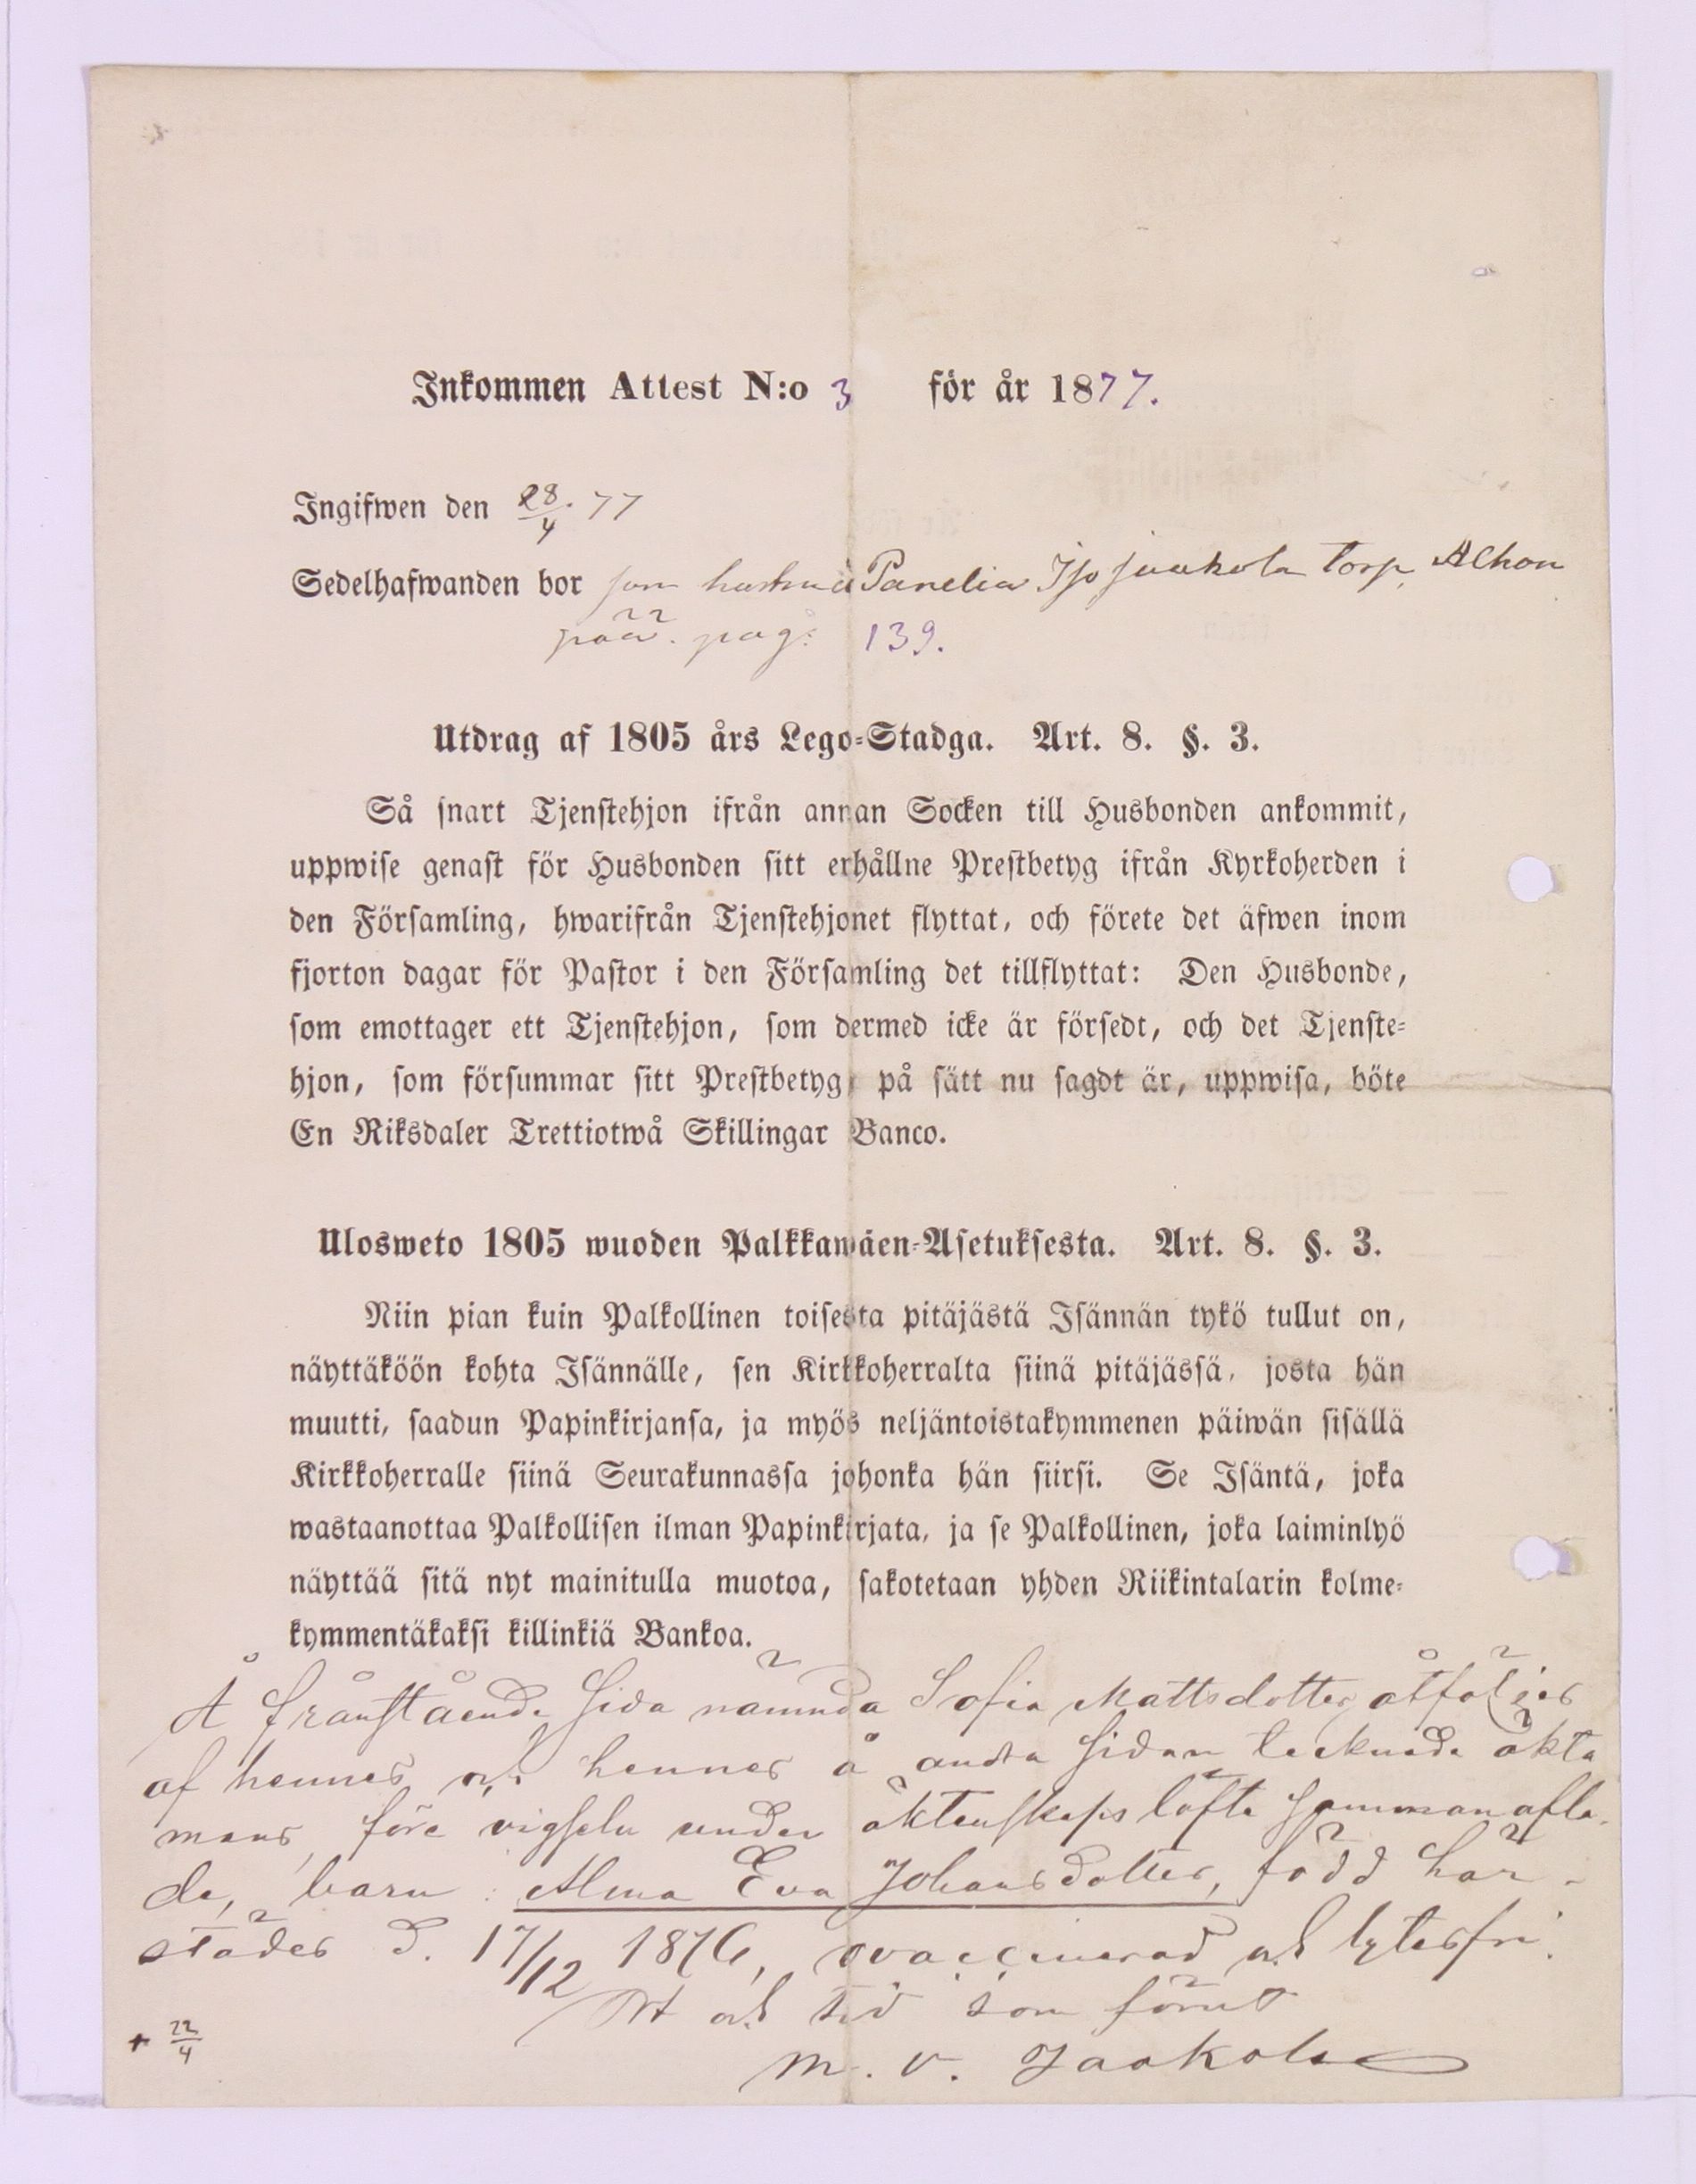 Inkommen Attest N:o 3 för år 1877.
Ingifwen den 28/4. 77
Sedelhafwanden bor som hustru å Panelia Iso Jaakola torp, Alhon
pää. pag: 139.
Utdrag af 1805 års Lego-Stadga. Art. 8. §. 3.
Så snart Tjenstehjon ifrån annan Socken till Husbonden ankommit,
uppwise genast för Husbonden sitt erhållne Prestbetyg ifrån Kyrkoherden i
den Församling, hwarifrån Tjenstehjonet flyttat, och förete det äfwen inom
fjorton dagar för Pastor i den Församling det tillflyttat: Den Husbonde,
som emottager ett Tjenstehjon, som dermed icke är försedt, och det Tjenste-
hjon, som försummar sitt Prestbetyg, på sätt nu sagdt är, uppwisa, böte
En Riksdaler Trettiotwå Skillingar Banco.
Ulosweto 1805 wuoden Palkkawäen-Asetuksesta. Art. 8. §. 3.
Niin pian kuin Palkollinen toisesta pitäjästä Isännän tykö tullut on,
näyttäköön kohta Isännälle, sen Kirkkoherralta siinä pitäjässä, josta hän
muutti, saadun Papinkirjansa, ja myös neljäntoistakymmenen päiwän sisällä
Kirkkoherralle siinä Seurakunnassa johonka hän siirsi. Se Isäntä, joka
wastaanottaa Palkollisen ilman Papinkirjata, ja se Palkollinen, joka laiminlyö
näyttää sitä nyt mainitulla muotoa, sakotetaan yhden Riikintalarin kolme-
kymmentäkaksi killinkiä Bankoa.
Å frånstående sida nämnda Sofia Mattsdotter åtföljes
af hennes och hennes å andra sidan tecknade äkta
mans, före vigseln under äktenskaps löfte sammanafla-
de, barn: Alma Eva Johansdotter, född här-
städes d. 17/12 1876, ovaccinerad och lytesfri.
Ort och tid som förut
M. V. Jaakola
+ 22/4